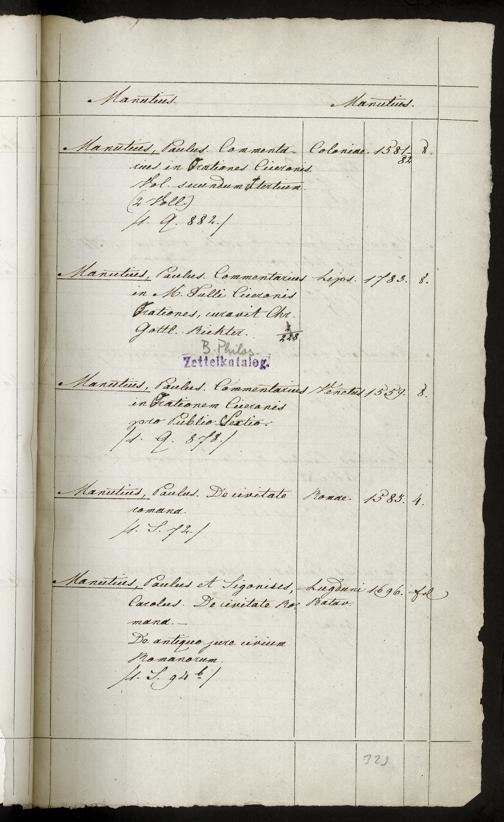 Manutius. Manutius.
Manutius, Paulus. Commenta- Coloniae. 1581/82 8.
rius in Orationes Ciceronis.
Vol. secundum & tertium.
(2 Voll.)
/s. Q. 882./
Manutius, Paulus. Commentarius Lips. 1783. 8.
in M. Tulli Ciceronis
Orationes, curavit Chr.
Gottl. Richter. 228
B. Philos.
Zettelkatalog.
Manutius, Paulus. Commentarius Venetiis 1559. 8.
in Orationem Ciceronis
pro Publio Sextio.
/s. Q. 878./
Manutius, Paulus. De civitate Romae. 1585. 4.
romana.
/s. S. 72./
Manutius, Paulus et Sigonius, Lugduni 1696. fol
Carolus. De civitate Ro- Batav.
mana. —
De antiquo jure civium
Romanorum.
/s. S. 94 b/
321